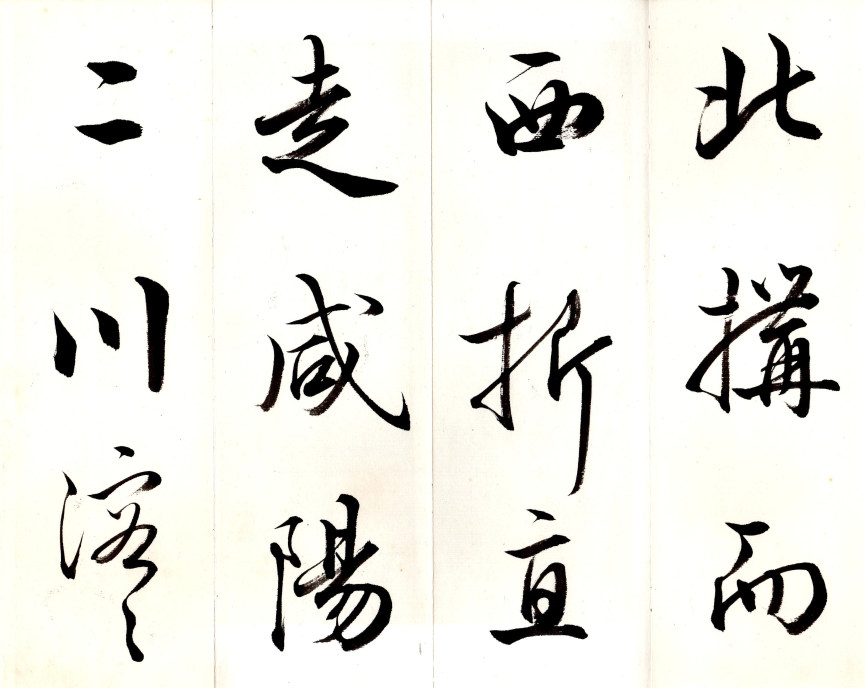 北搆而
西折直
走咸陽
二川溶〻